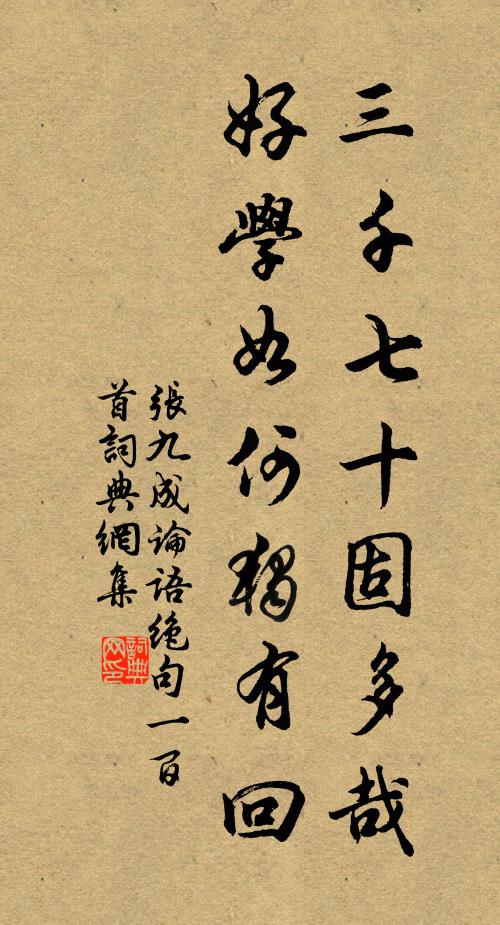 三千七十固多哉
好學如何獨有回
張九成論語绝句一百
首詞典網集
詞典
网印